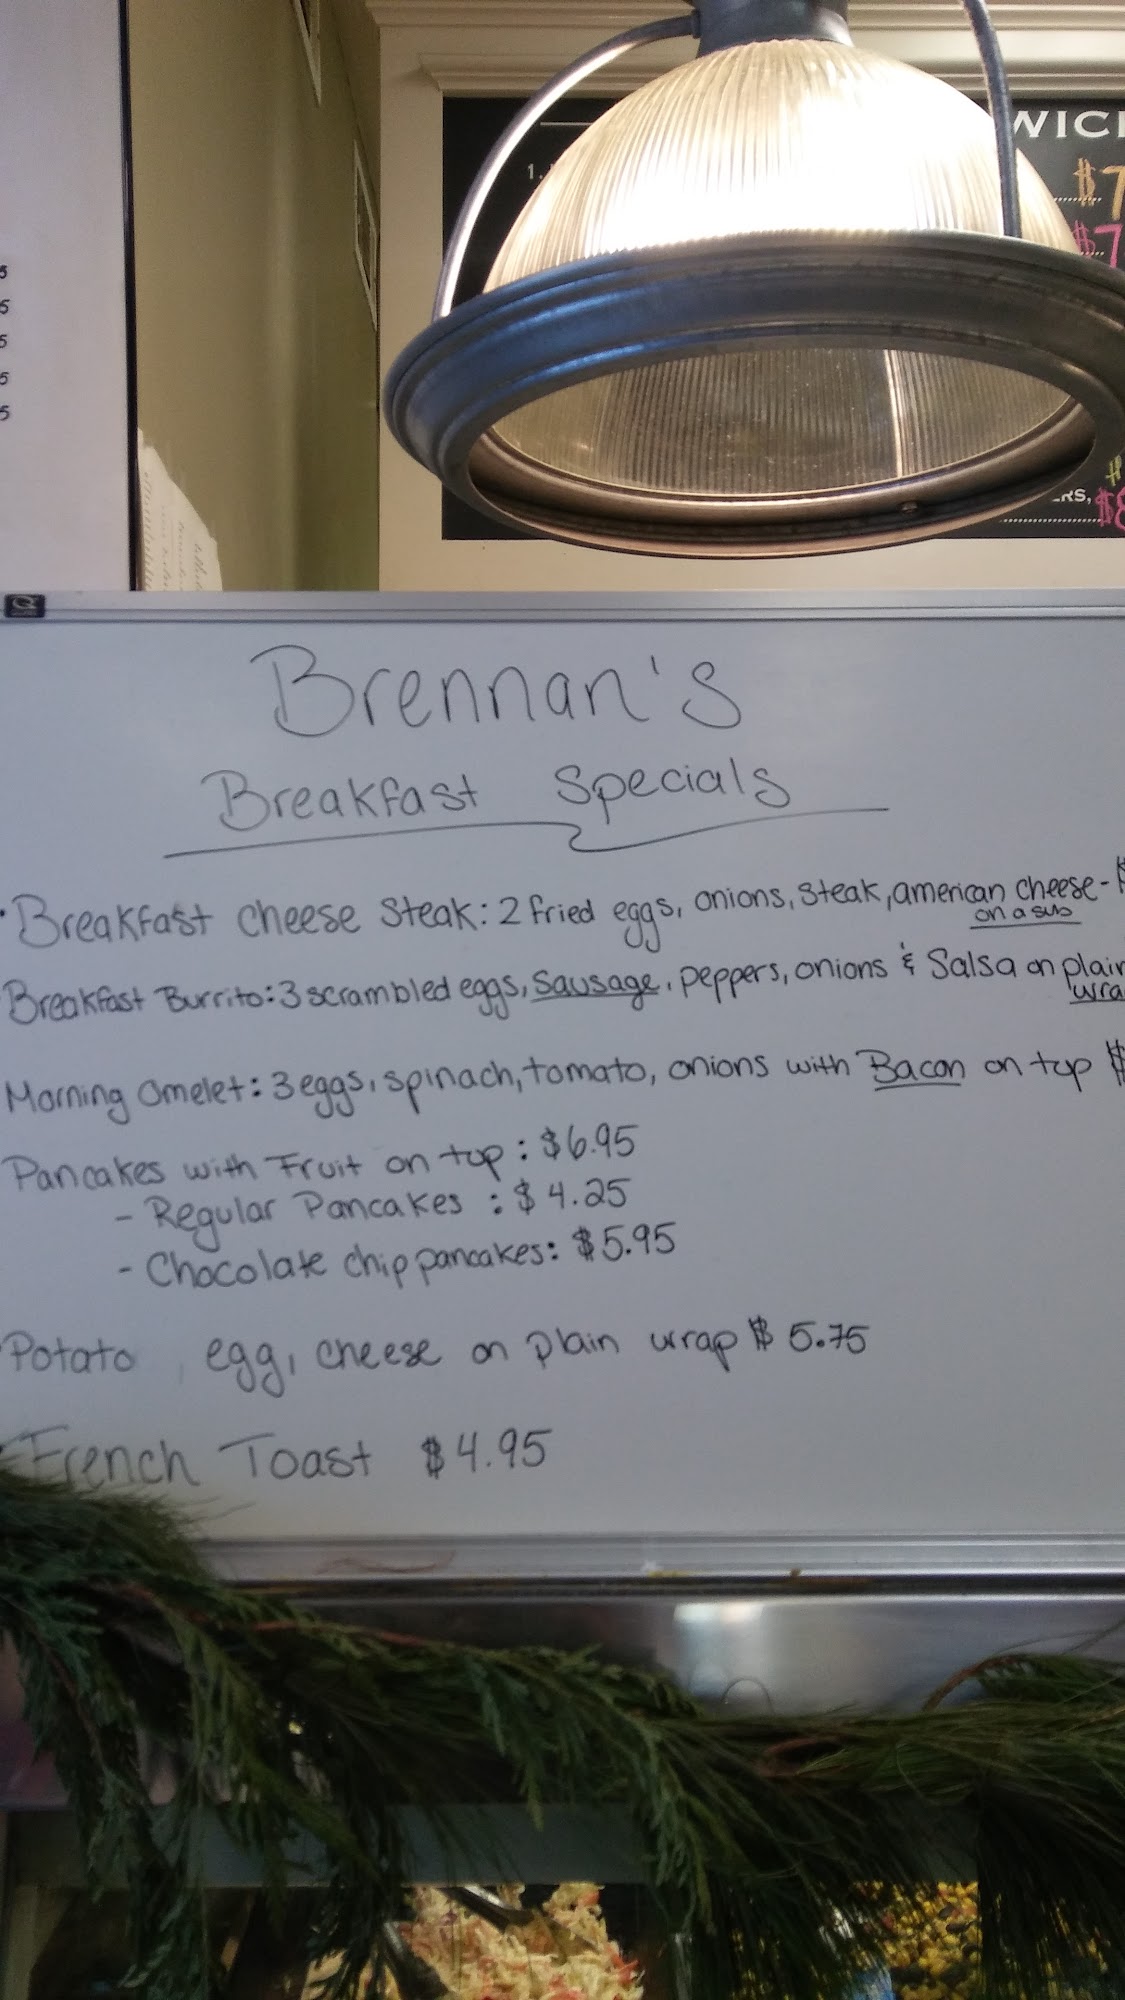 WICH
1.
$7
$7
5
5
5
5
5
$8
Brennan's
Breakfast Specials
• Breakfast cheese steak: 2 fried eggs, onions, steak, american cheese - $
on a sub
Breakfast Burrito: 3 scrambled eggs, Sausage, peppers, onions & Salsa on plain
wra
Morning Omelet: 3 eggs, spinach, tomato, onions with Bacon on top $
Pancakes with Fruit on top: $6.95
- Regular Pancakes: $4.25
- Chocolate chip pancakes: $5.95
Potato, egg, cheese on plain wrap $5.75
• French Toast $4.95